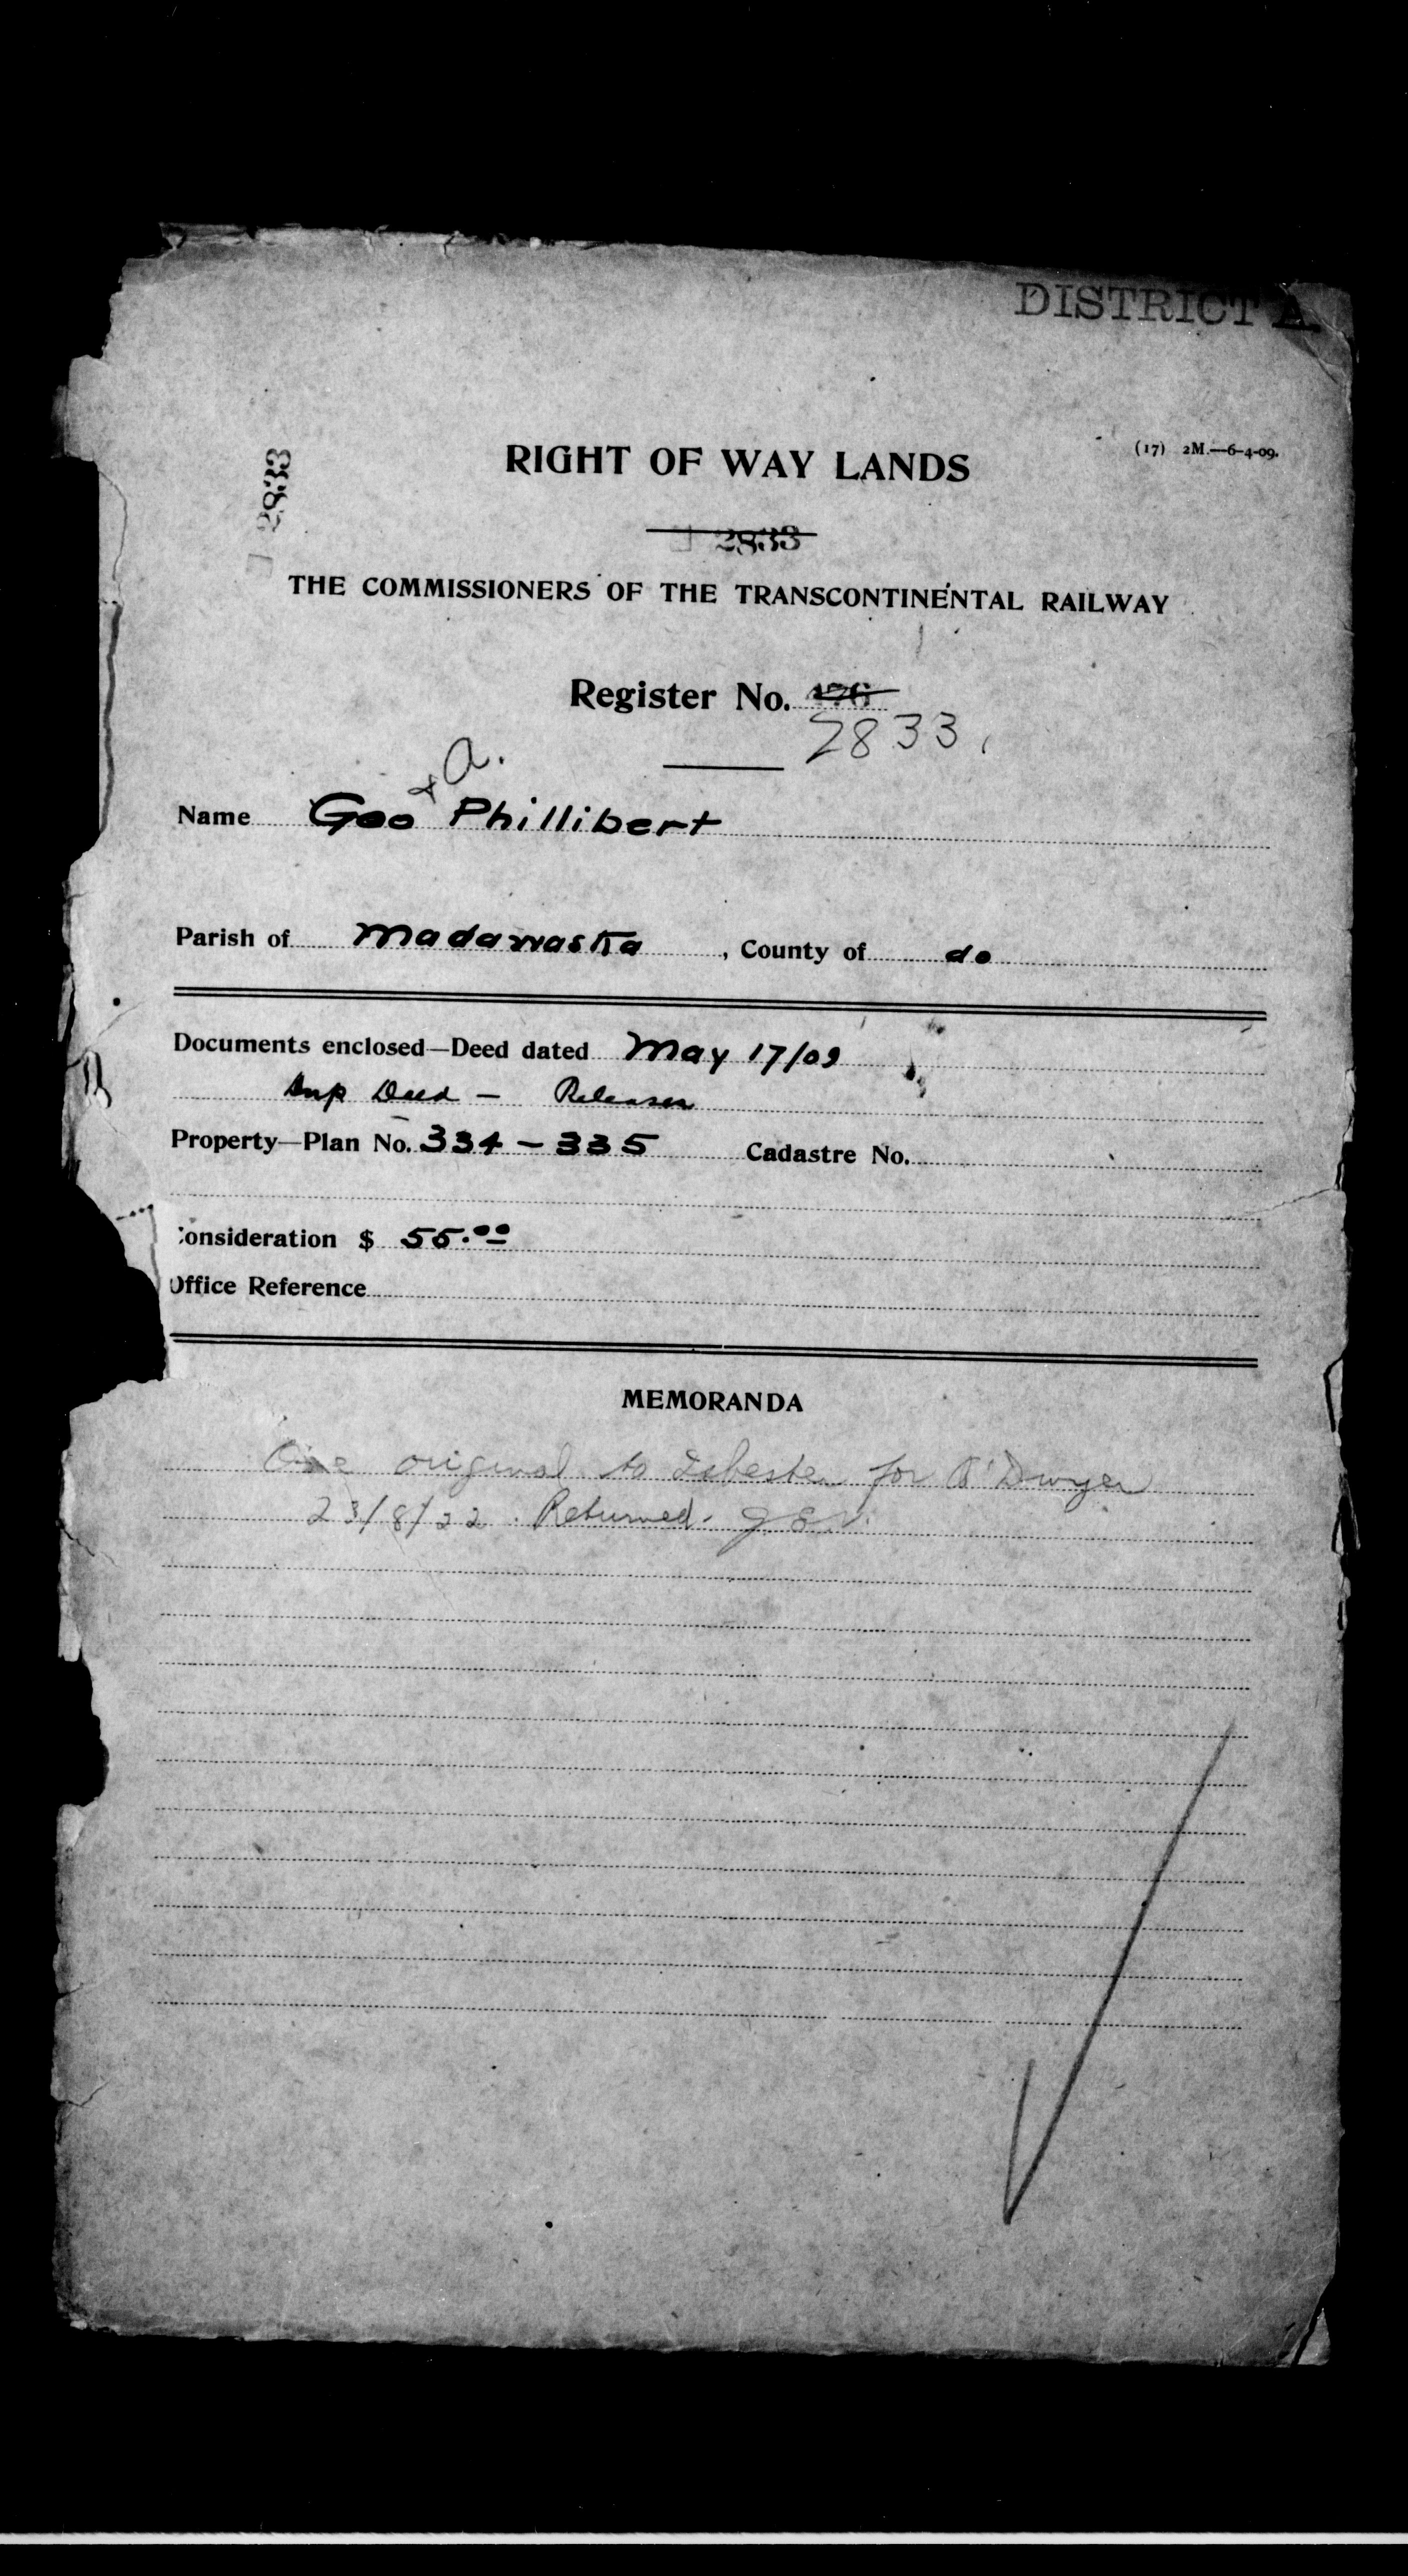 DISTRICT A.
(17) 2M.—6-4-09.
RIGHT OF WAY LANDS
2833
2833
THE COMMISSIONERS OF THE TRANSCONTINENTAL RAILWAY
Register No. 176
2833.
& A.
Name Geo Phillibert
Parish of Madawaska, County of do
Documents enclosed—Deed dated May 17/09
Sup Deed — Releases
Property—Plan No. 334 - 335 Cadastre No.
onsideration $ 55.00
Office Reference
MEMORANDA
One original to Isbester for O'Dwyer
23/8/22. Returned.